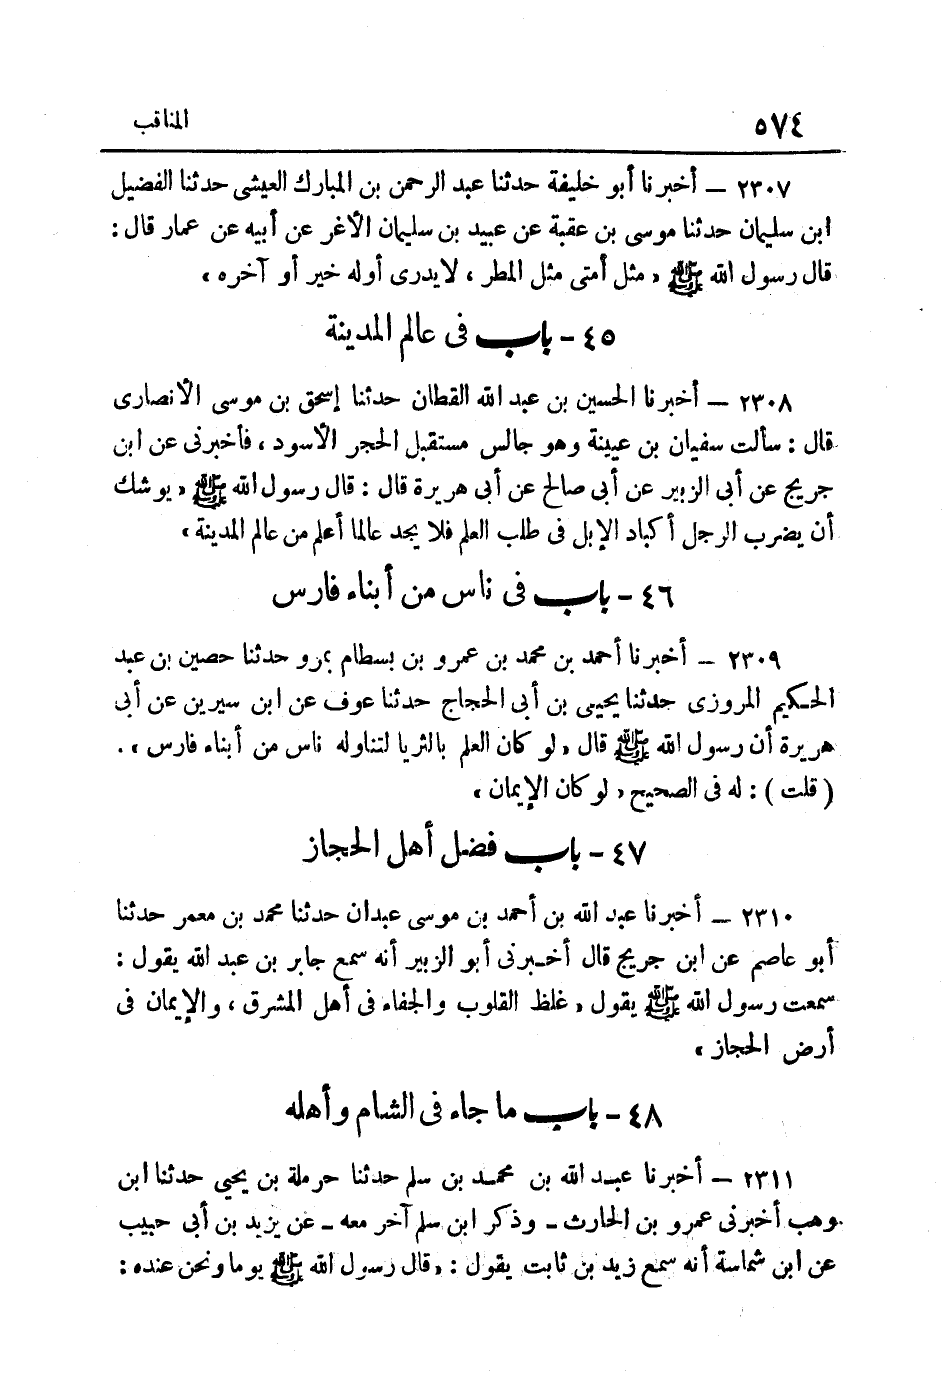 ٥٧٤ المناقب
٢٣٠٧ – أخبرنا أبو خليفة حدثنا عبد الرحمن بن المبارك العيشى حدثنا الفضيل
ابن سليمان حدثنا موسى بن عقبة عن عبيد بن سليمان الأغر عن أبيه عن عمار قال :
قال رسول الله ﷺ « مثل أمتى مثل المطر ، لايدرى أوله خير أو آخره »
٤٥ – باب فى عالم المدينة
٢٣٠٨ – أخبرنا الحسين بن عبد الله القطان حدثنا إسحق بن موسى الأنصارى
قال : سألت سفيان بن عيينة وهو جالس مستقبل الحجر الأسود ، فأخبرنى عن ابن
جريج عن أبى الزبير عن أبى صالح عن أبى هريرة قال : قال رسول الله ﷺ « يوشك
أن يضرب الرجل أكباد الإبل فى طلب العلم فلا يجد عالما أعلم من عالم المدينة »
٤٦ – باب فى ناس من أبناء فارس
٢٣٠٩ – أخبرنا أحمد بن محمد بن عمرو بن بسطام بمرو حدثنا حصين بن عبد
الحكيم المروزى حدثنا يحيى بن أبى الحجاج حدثنا عوف عن ابن سيرين عن أبى
هريرة أن رسول الله ﷺ قال « لو كان العلم بالثريا لتناوله ناس من أبناء فارس » .
( قلت ) : له فى الصحيح « لو كان الإيمان »
٤٧ – باب فضل أهل الحجاز
٢٣١٠ – أخبرنا عبد الله بن أحمد بن موسى عبدان حدثنا محمد بن معمر حدثنا
أبو عاصم عن ابن جريج قال أخبرنى أبو الزبير أنه سمع جابر بن عبد الله يقول :
سمعت رسول الله ﷺ يقول « غلظ القلوب والجفاء فى أهل المشرق ، والإيمان فى
أرض الحجاز »
٤٨ – باب ما جاء فى الشام وأهله
٢٣١١ – أخبرنا عبد الله بن محمد بن سلم حدثنا حرملة بن يحيى حدثنا ابن
وهب أخبرنى عمرو بن الحارث – وذكر ابن سلم آخر معه – عن يزيد بن أبى حبيب
عن ابن شماسة أنه سمع زيد بن ثابت يقول : « قال رسول الله ﷺ يوما ونحن عنده :